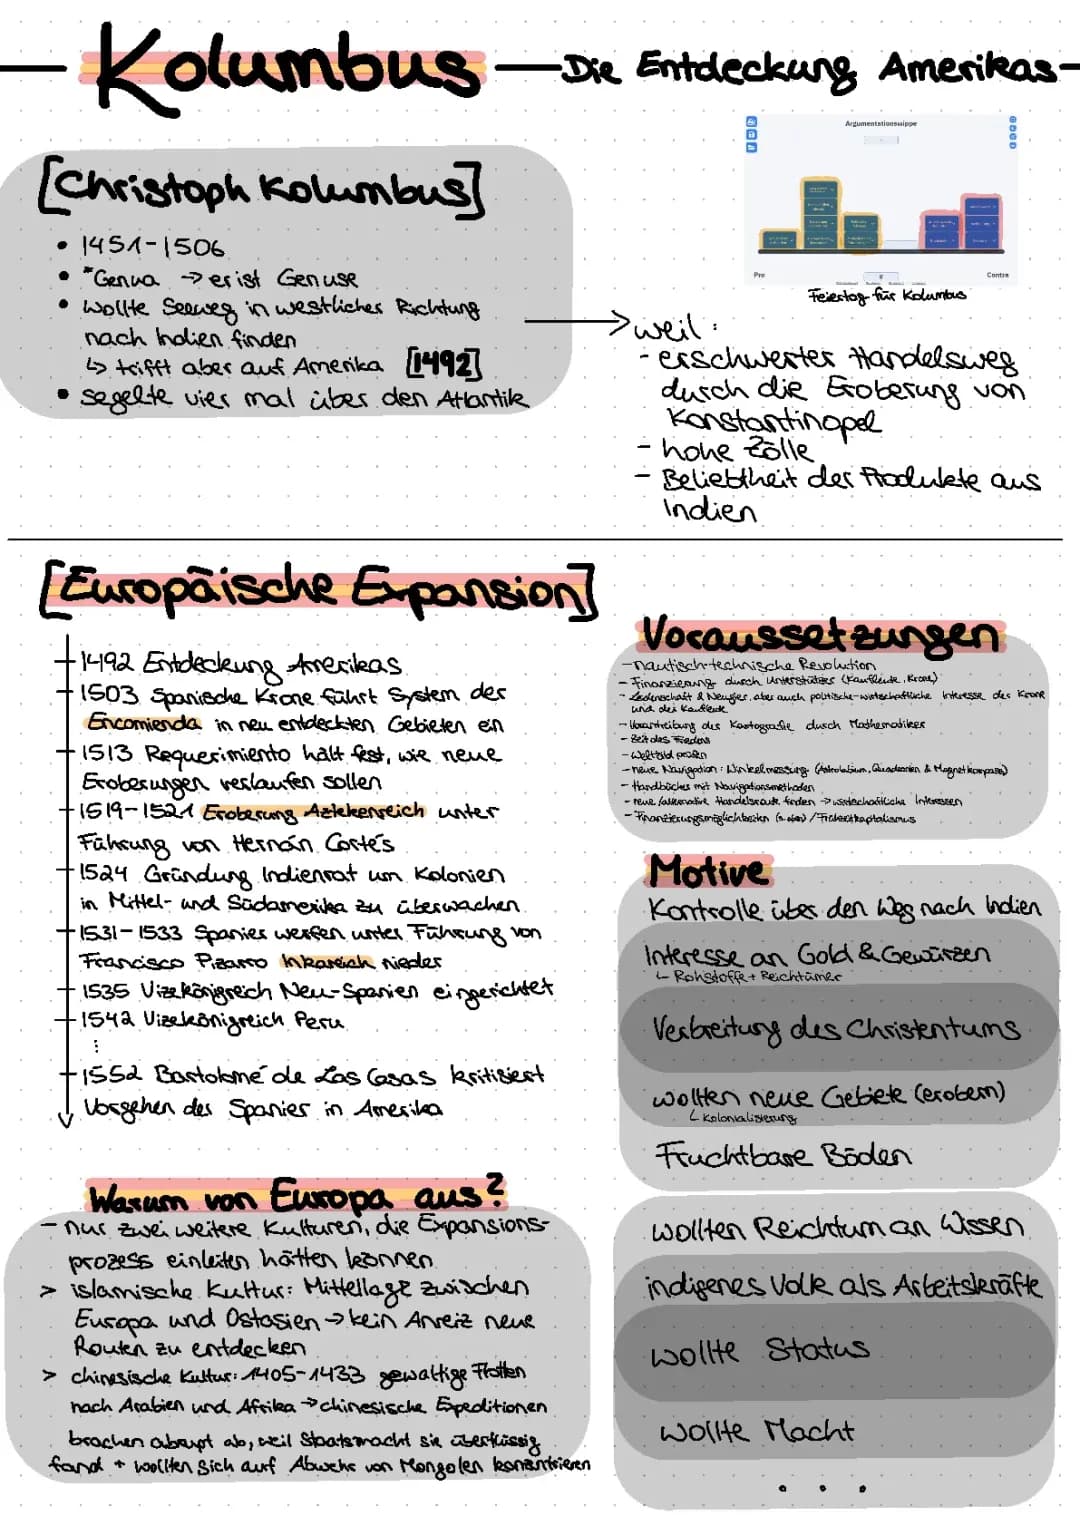 Kolumbus – Die Entdeckung Amerikas –
[Christoph Kolumbus]
• 1451-1506
• *Genua → er ist Genuse
• wollte Seeweg in westlicher Richtung
nach Indien finden
↳ trifft aber auf Amerika [1492]
• segelte vier mal über den Atlantik
Argumentationswippe
Pro
Contra
Feiertag für Kolumbus
weil:
- erschwerter Handelsweg
durch die Eroberung von
Konstantinopel
- hohe Zölle
- Beliebtheit der Produkte aus
Indien
[Europäische Expansion]
1492 Entdeckung Amerikas
1503 Spanische Krone führt System der
Encomienda in neu entdeckten Gebieten ein
1513 Requerimiento hält fest, wie neue
Eroberungen verlaufen sollen
1519-1521 Eroberung Aztekenreich unter
Führung von Hernán Cortés
1524 Gründung Indienrat um Kolonien
in Mittel- und Südamerika zu überwachen
1531-1533 Spanier werfen unter Führung von
Francisco Pizarro Inkareich nieder
1535 Vizekönigreich Neu-Spanien eingerichtet
1542 Vizekönigreich Peru
⋮
1552 Bartolomé de Las Casas kritisiert
Vorgehen der Spanier in Amerika
Voraussetzungen
- nautisch-technische Revolution
- Finanzierung durch Unterstützer (Kaufleute, Krone)
- Leidenschaft & Neugier, aber auch politische-wirtschaftliche Interesse der Krone
und der Kaufleute
- Vorantreibung der Kartografie durch Mathematiker
- Zeit des Friedens
- Weltbild prüfen
- neue Navigation: Winkelmessung (Astrolabium, Quadranten & Magnetkompass)
- Handbücher mit Navigationsmethoden
- neue/alternative Handelsroute finden → wirtschaftliche Interessen
- Finanzierungsmöglichkeiten (s. oben) / Frühkapitalismus
Motive
Kontrolle über den Weg nach Indien
Interesse an Gold & Gewürzen
↳ Rohstoffe + Reichtümer
Verbreitung des Christentums
wollten neue Gebiete (erobern)
↳ Kolonialisierung
Fruchtbare Böden
wollten Reichtum an Wissen
indigenes Volk als Arbeitskräfte
wollte Status
wollte Macht
...
Warum von Europa aus?
- nur zwei weitere Kulturen, die Expansions-
prozess einleiten hätten können
> islamische Kultur: Mittellage zwischen
Europa und Ostasien → kein Anreiz neue
Routen zu entdecken
> chinesische Kultur: 1405-1433 gewaltige Flotten
nach Arabien und Afrika → chinesische Expeditionen
brachen abrupt ab, weil Staatsmacht sie überflüssig
fand + wollten sich auf Abwehr von Mongolen konzentrieren